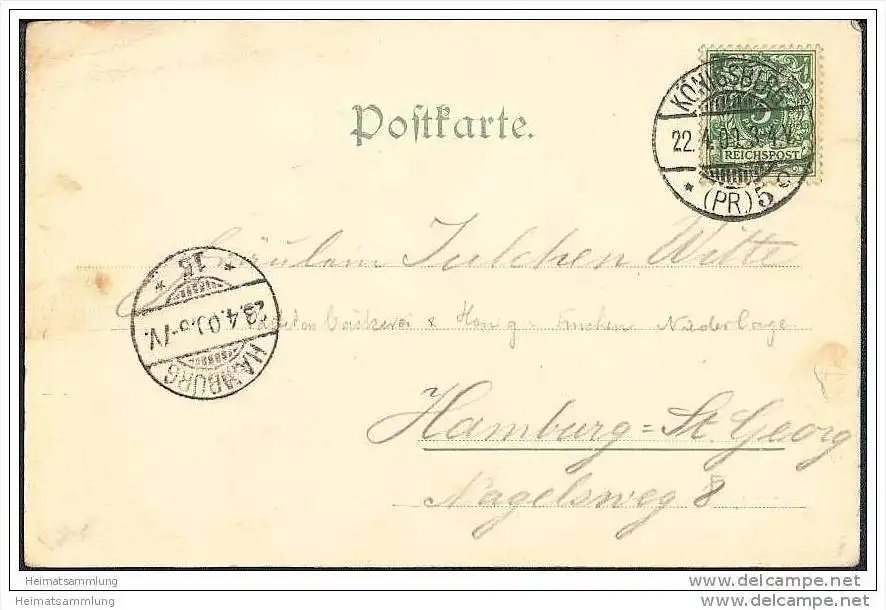 KÖNIGSBERG
22.4.00.
(PR.) 5 c
REICHSPOST
Postkarte.
Fräulein Julchen Witte
bäckerei & Honig = Kuchen Niederlage
Hamburg = St. Georg
Nagelsweg 8
* 15 *
23.4.00.
HAMBURG
Heimatsammlung
www.delcampe.net
Heimatsammlung
www.delcampe.net